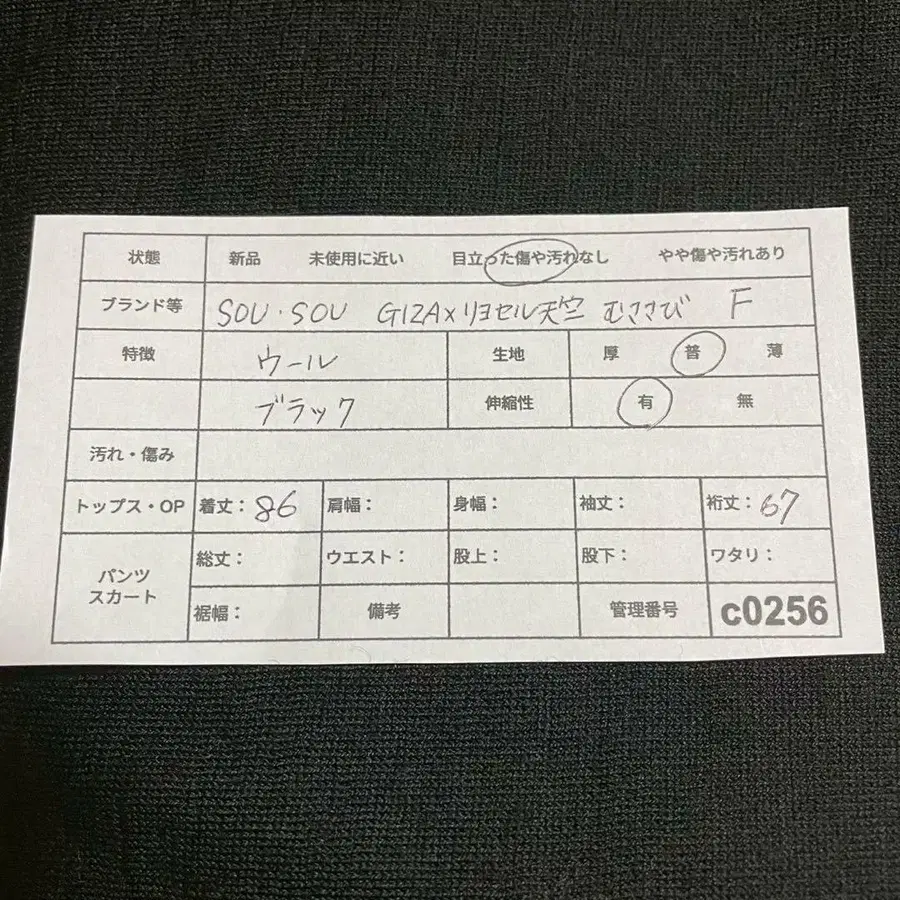 状態 新品 未使用に近い 目立った傷や汚れなし やや傷や汚れあり
ブランド等 SOU・SOU GIZA×リヨセル天竺 むささび F
特徴 ウール 生地 厚 普 薄
ブラック 伸縮性 有 無
汚れ・傷み
トップス・OP 着丈：86 肩幅： 身幅： 袖丈： 裄丈：67
パンツ スカート 総丈： ウエスト： 股上： 股下： ワタリ：
裾幅： 備考 管理番号 c0256